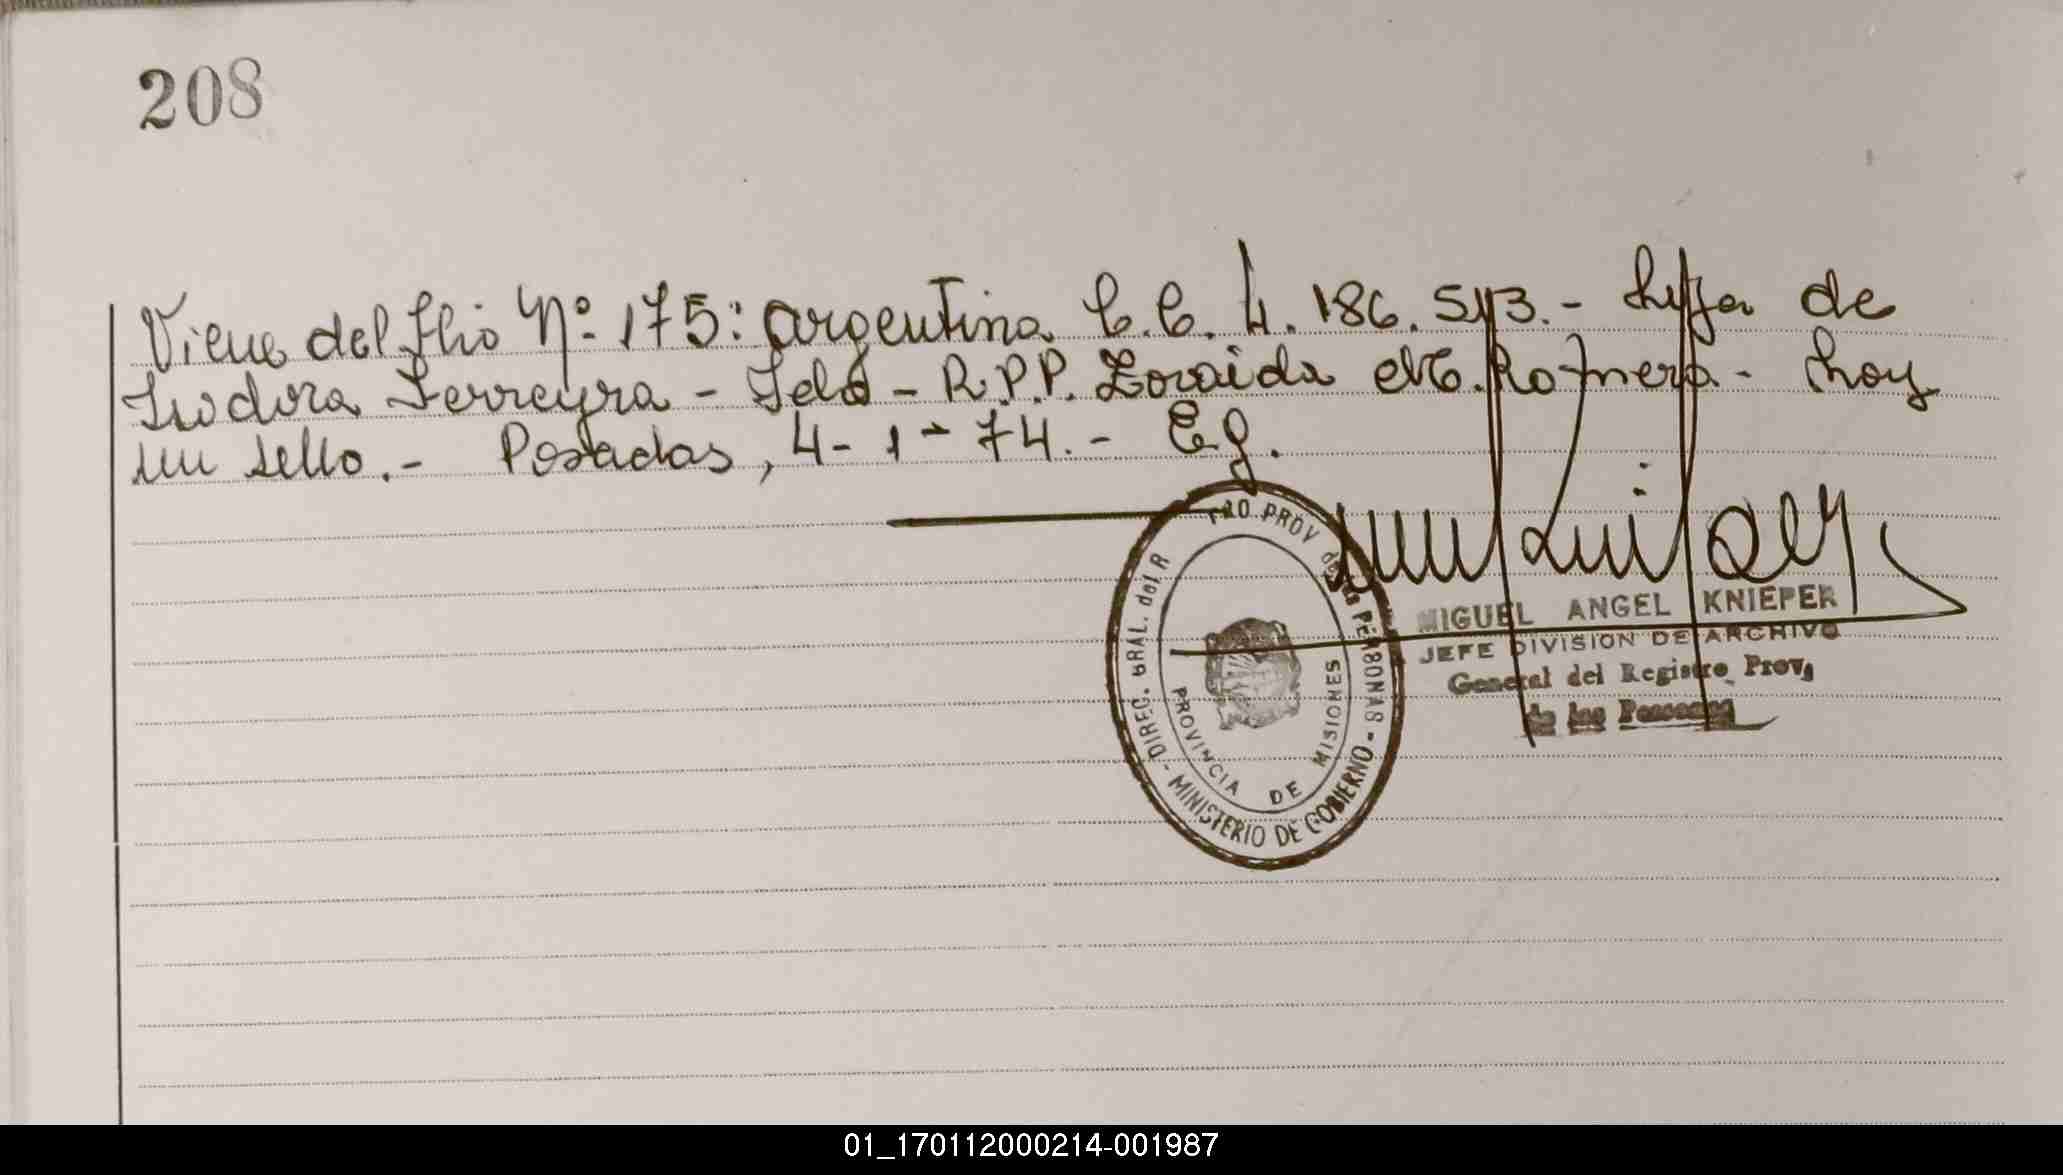 208
Viene del flio Nº 175: argentina C.C. 4.186.513.- hija de
Isidora Ferreyra - Fdo - R.P.P. Zoraida M. Romero - hay
un sello.- Posadas, 4-1-74.- Eg.
DIREC. GRAL. del R PROV de las PERSONAS - MINISTERIO DE GOBIERNO -
PROVINCIA DE MISIONES
MIGUEL ANGEL KNIEPER
JEFE DIVISION DE ARCHIVO
General del Registro Prov,
de las Personas
01_170112000214-001987